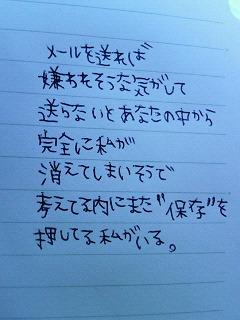 メールを送れば
嫌われそうな気がして
送らないとあなたの中から
完全に私が
消えてしまいそうで
考えてる内にまた"保存"を
押してる私がいる。